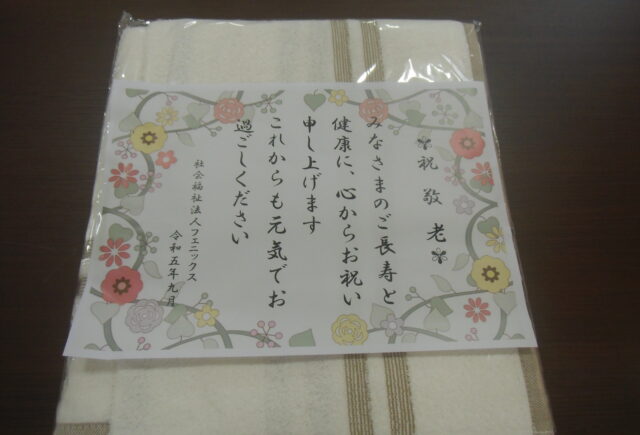 祝敬老
みなさまのご長寿と
健康に、心からお祝い
申し上げます
これからも元気でお
過ごしください
社会福祉法人フェニックス
令和五年九月